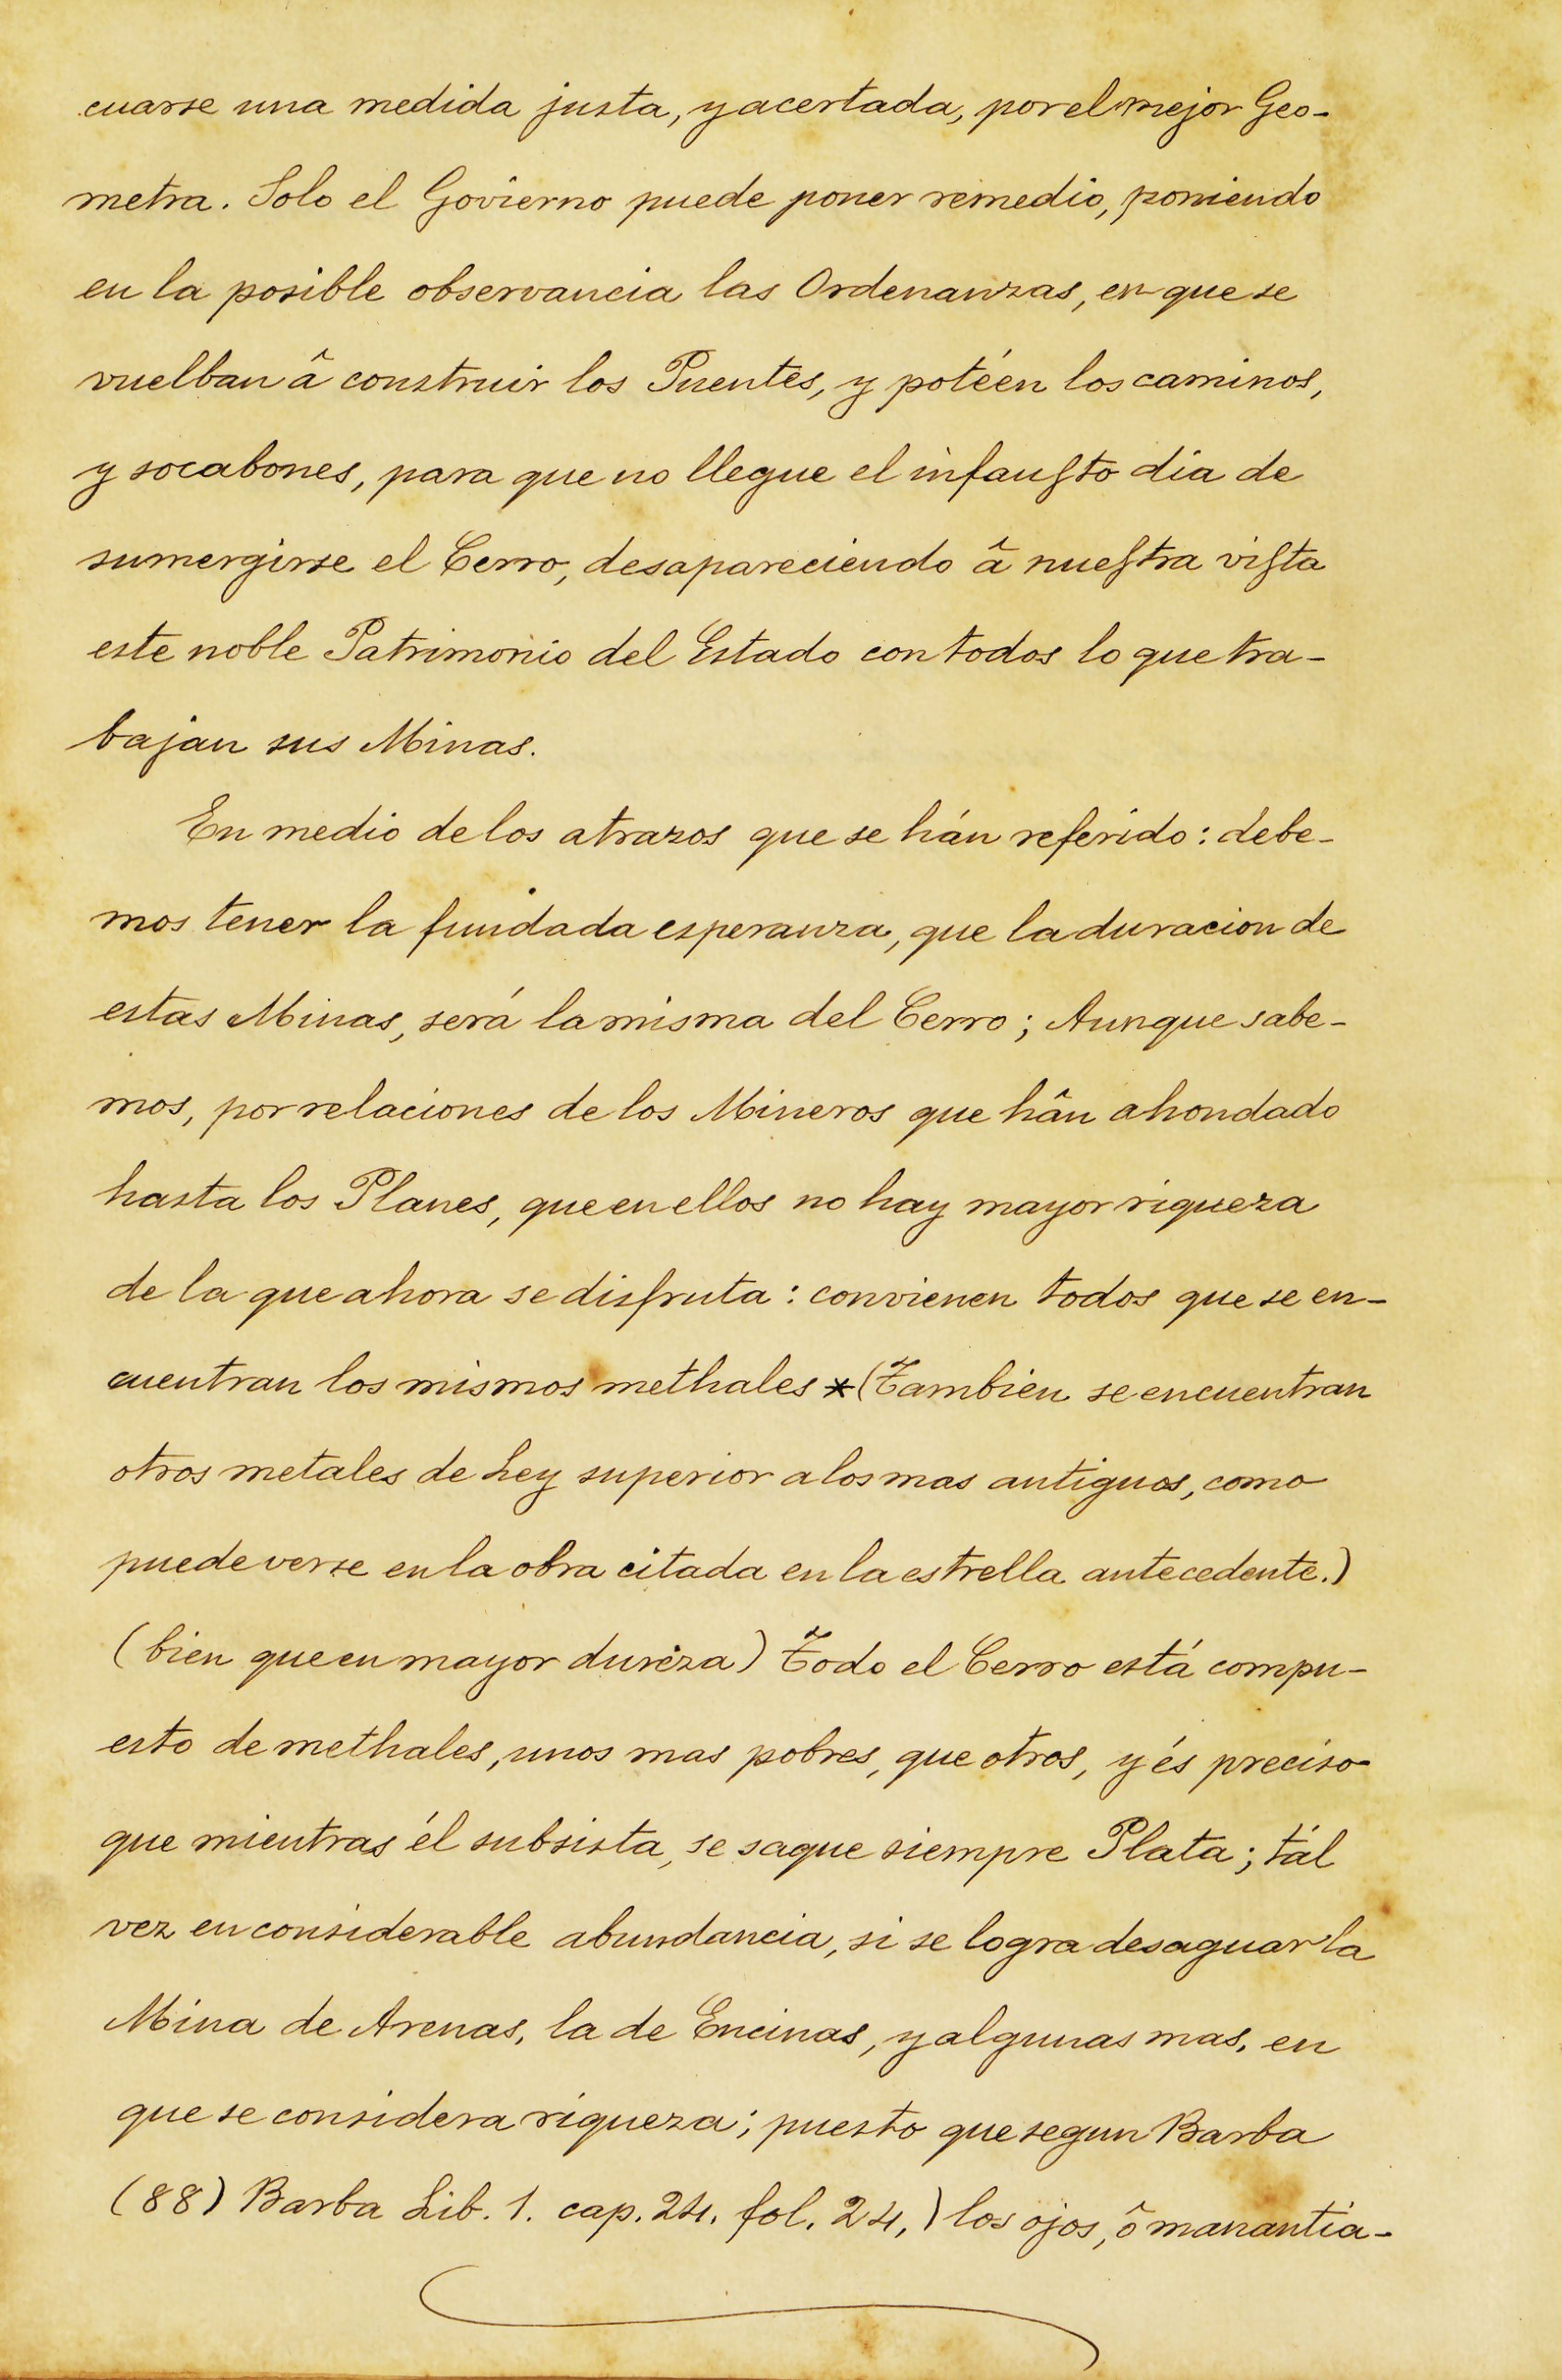 cuarse una medida justa, y acertada, por el mejor Geo-
metra. Solo el Govierno puede poner remedio, poniendo
en la posible observancia las Ordenanzas, en que se
vuelban â construir los Puentes, y potéen los caminos,
y socabones, para que no llegue el infausto dia de
sumergirse el Cerro, desapareciendo â nuestra vista
este noble Patrimonio del Estado con todos lo que tra-
bajan sus Minas.
En medio de los atrazos que se hán referido: debe-
mos tener la fundada esperanza, que la duracion de
estas Minas, será la misma del Cerro; Aunque sabe-
mos, por relaciones de los Mineros que hân ahondado
hasta los Planes, que en ellos no hay mayor riqueza
de la que ahora se disfruta: convienen todos que se en-
cuentran los mismos methales * (Tambien se encuentran
otros metales de Ley superior a los mas antiguos, como
puede verse en la obra citada en la estrella antecedente.)
(bien que en mayor duréza) Todo el Cerro está compu-
esto de methales, unos mas pobres, que otros, y és preciso
que mientras él subsista, se saque siempre Plata; tál
vez en considerable abundancia, si se logra desaguar la
Mina de Arenas, la de Encinas, y algunas mas, en
que se considera riqueza; puesto que segun Barba
(88) Barba Lib. 1. cap. 24. fol. 24,) los ojos, ô manantia-